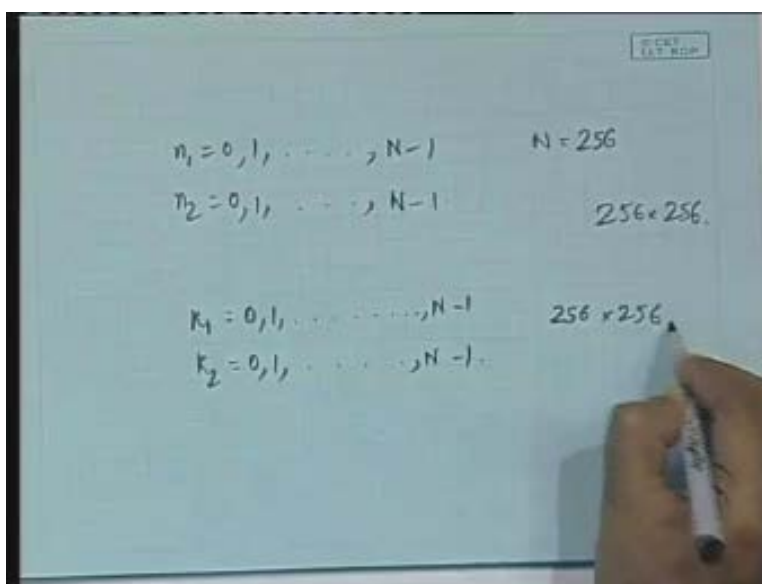 n₁ = 0, 1, . . . . . , N-1 N = 256
n₂ = 0, 1, . . . . , N-1. 256×256.
k₁ = 0, 1, . . . . . . . . ., N-1 256×256.
k₂ = 0, 1, . . . . . ., N-1.